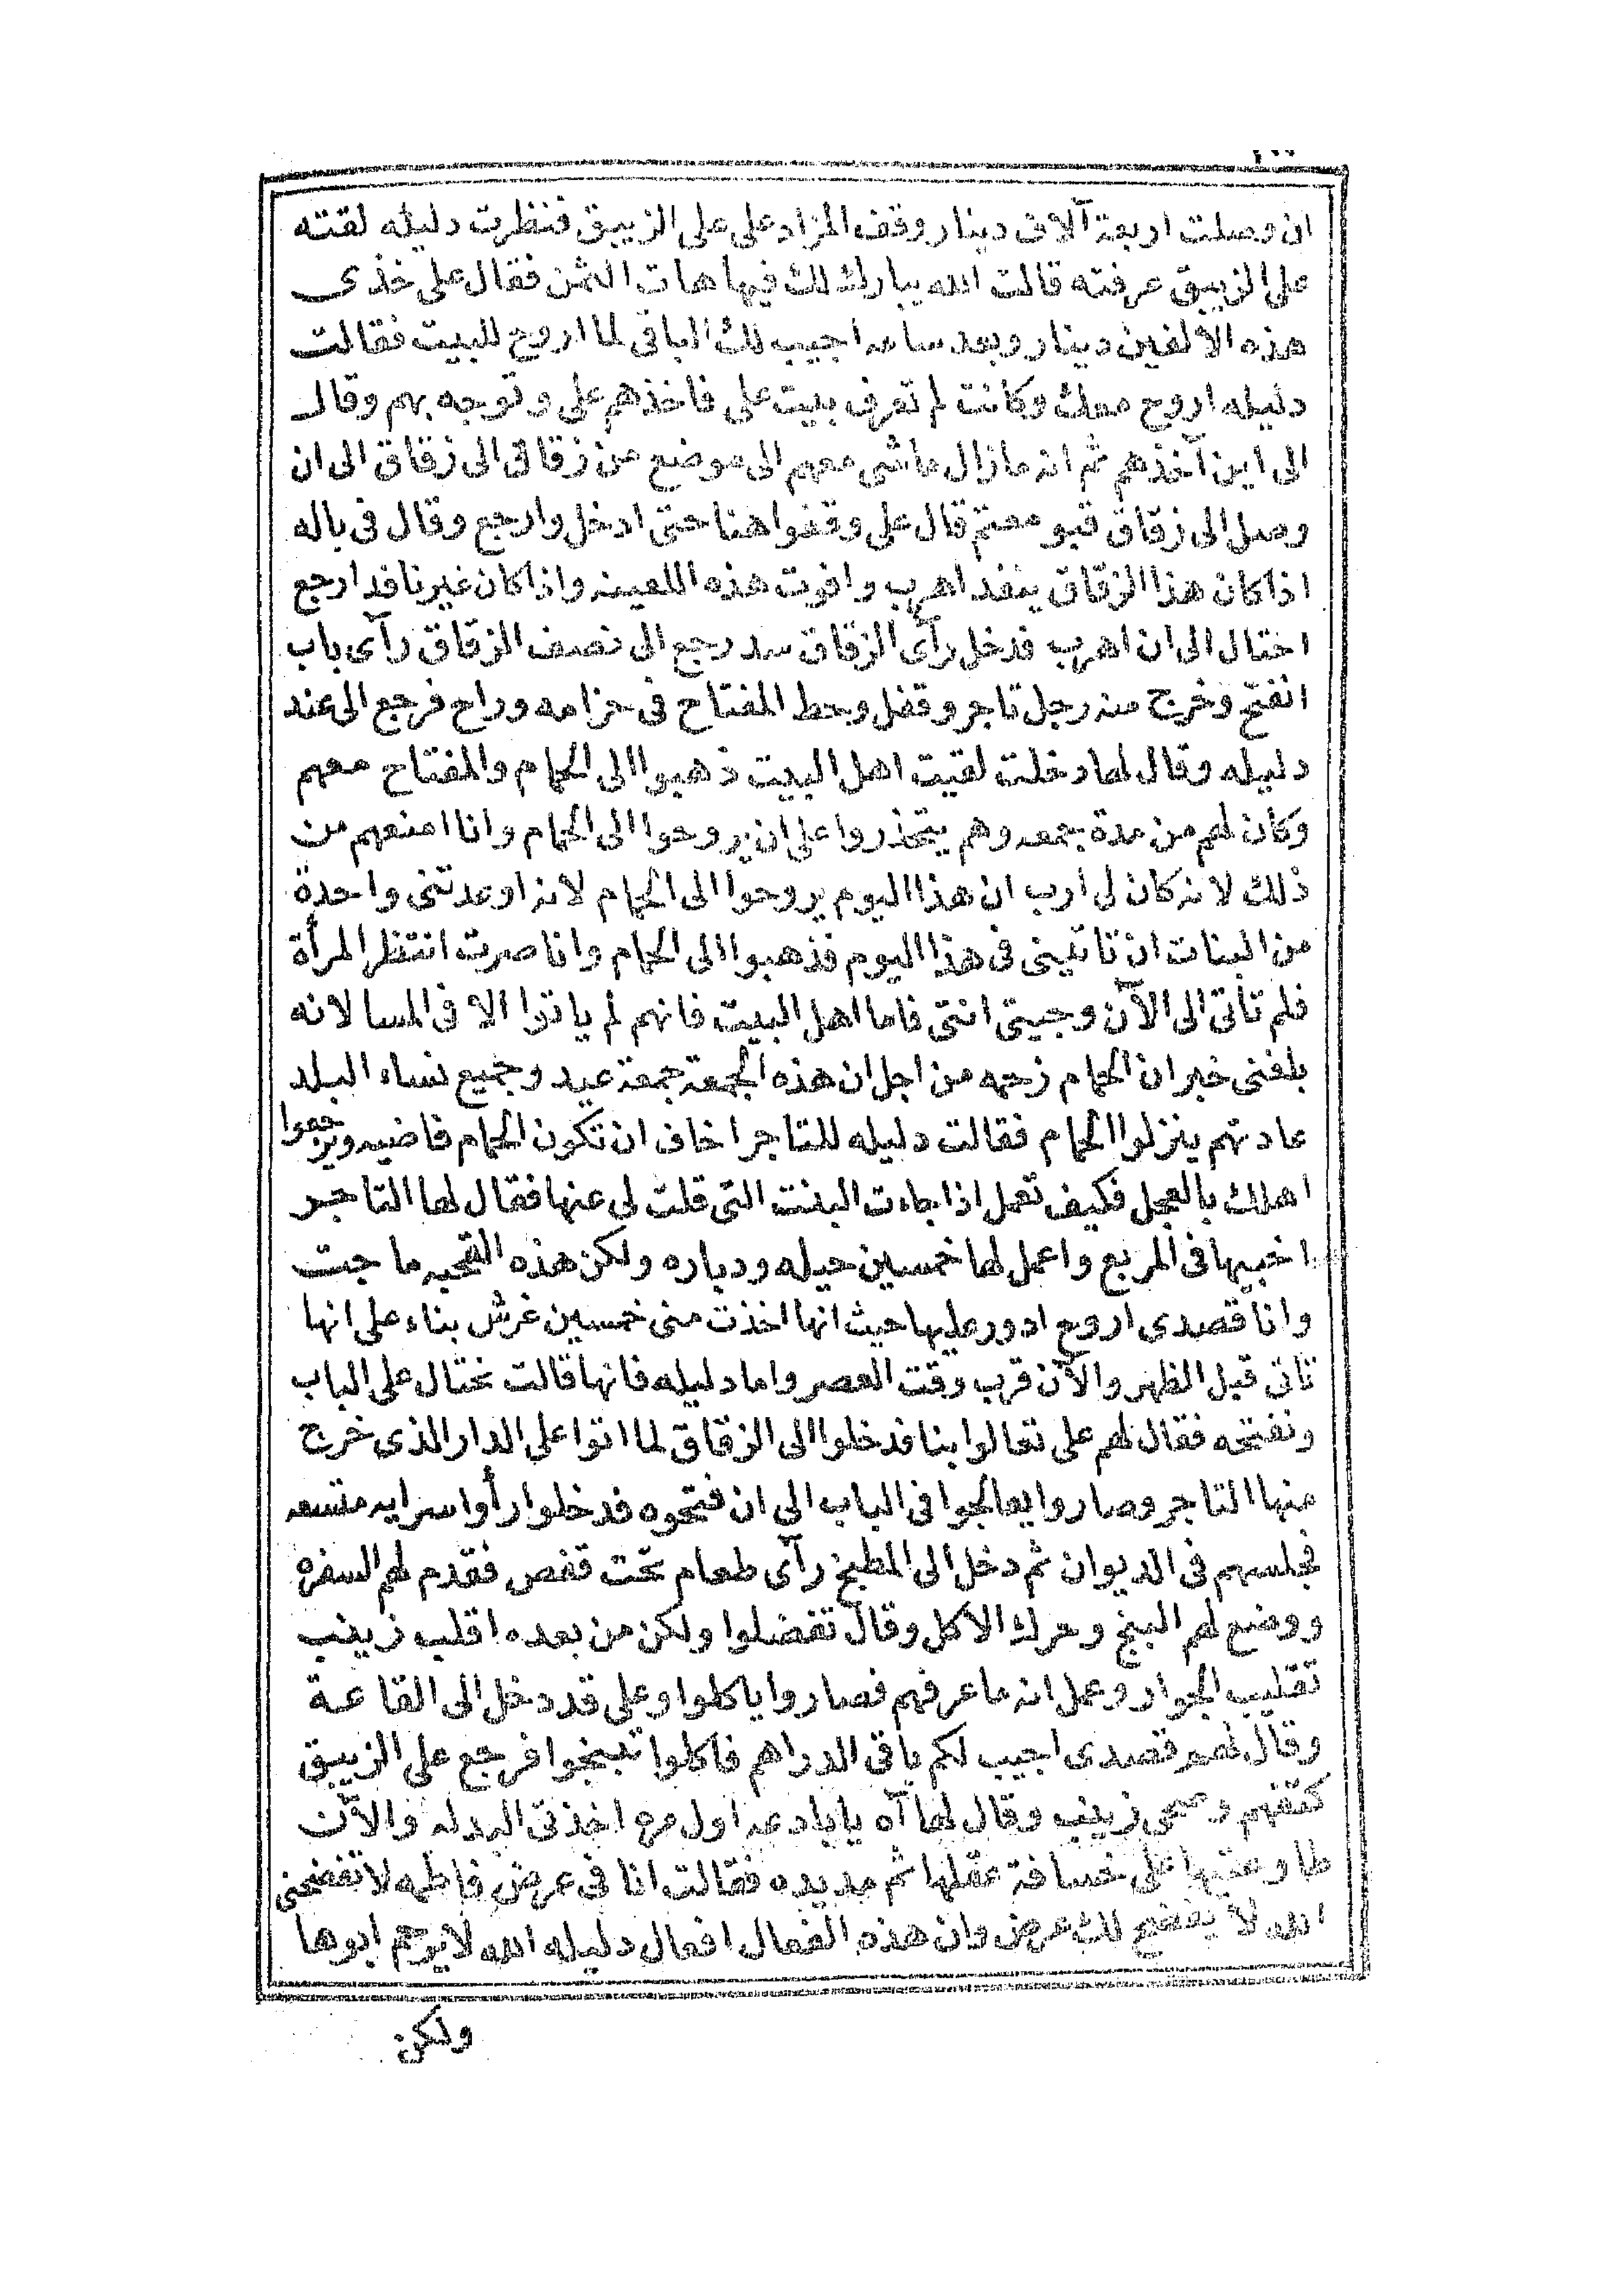 ان وصلت اربعة آلاف دينار وقف المزاد على على الزيبق فنظرت دليله لقته
على الزيبق عرفته قالت الله يبارك لك فيها هات الثمن فقال على خذى
هذه الالفين دينار وبعد ساعه اجيب لك الباقى لما اروح للبيت فقالت
دليله اروح معك وكانت لم تعرف بيت على فاخذهم على وتوجه بهم وقال
الى اين آخذهم ثم انه مازال ماشى معهم الى موضع من زقاق الى زقاق الى ان
وصل الى زقاق قبو معتم قال على وقفوا هنا حتى ادخل وارجع وقال فى باله
اذا كان هذا الزقاق ينفد اهرب وافوت هذه اللعينه واذا كان غير نافد ارجع
احتال الى ان اهرب فدخل رأى الزقاق سد رجع الى نصف الزقاق رآى باب
انفتح وخرج منه رجل تاجر وقفل وحط المفتاح فى حزامه وراح فرجع الى عند
دليله وقال لها دخلت لقيت اهل البيت ذهبوا الى الحمام والمفتاح معهم
وكان لهم من مدة جمعه وهم يتحذروا على ان يروحوا الى الحمام وانا امنعهم من
ذلك لانه كان لى ارب ان هذا اليوم يروحوا الى الحمام لانه اوعدتنى واحدة
من البنات ان تاتينى فى هذا اليوم فذهبوا الى الحمام وانا صرت انتظر المرأة
فلم تأتى الى الآن وجيتى انتى فاما اهل البيت فانهم لم ياتوا الا فى المسا لانه
بلغنى خبر ان الحمام زحمه من اجل ان هذه الجمعة جمعة عيد وجميع نساء البلد
عادتهم ينزلوا الحمام فقالت دليله للتاجر اخاف ان تكون الحمام فاضيه ويرجعوا
اهلك بالعجل فكيف تعمل اذا جاءت البنت التى قلت لى عنها فقال لها التاجر
اخبيها فى المربع واعمل لها خمسين حيله ودباره ولكن هذه القحبه ما جت
وانا قصدى اروح ادور عليها حيث انها اخذت منى خمسين غرش بناء على انها
تاتى قبل الظهر والآن قرب وقت العصر واما دليله فانها قالت نحتال على الباب
ونفتحه فقال لهم على تعالوا بنا فدخلوا الى الزقاق لما اتوا على الدار الذى خرج
منها التاجر وصاروا يعالجوا فى الباب الى ان فتحوه فدخلوا رأوا سرايه متسعه
فجلسهم فى الديوان ثم دخل الى المطبخ رآى طعام تحت قفص فقدم لهم السفره
ووضع لهم البنج وحرك الاكل وقال تفضلوا ولكن من بعده اقلب زينب
تقليب الجوار وعمل انه ما عرفهم فصاروا ياكلوا وعلى قد دخل الى القاعة
وقال لهم قصدى اجيب لكم باقى الدراهم فاكلوا تبنجوا فرجع على الزيبق
كتفهم وصحى زينب وقال لها آه يا اول مره اخذتى البدله والآن
على خسافة عقلها ثم مد يده فقالت انا فى عرض فاطمه لا تفضحنى
الله لا يفضح لك عرض وان هذه الفعال افعال دليله الله لا يرحم ابوها
ولكن